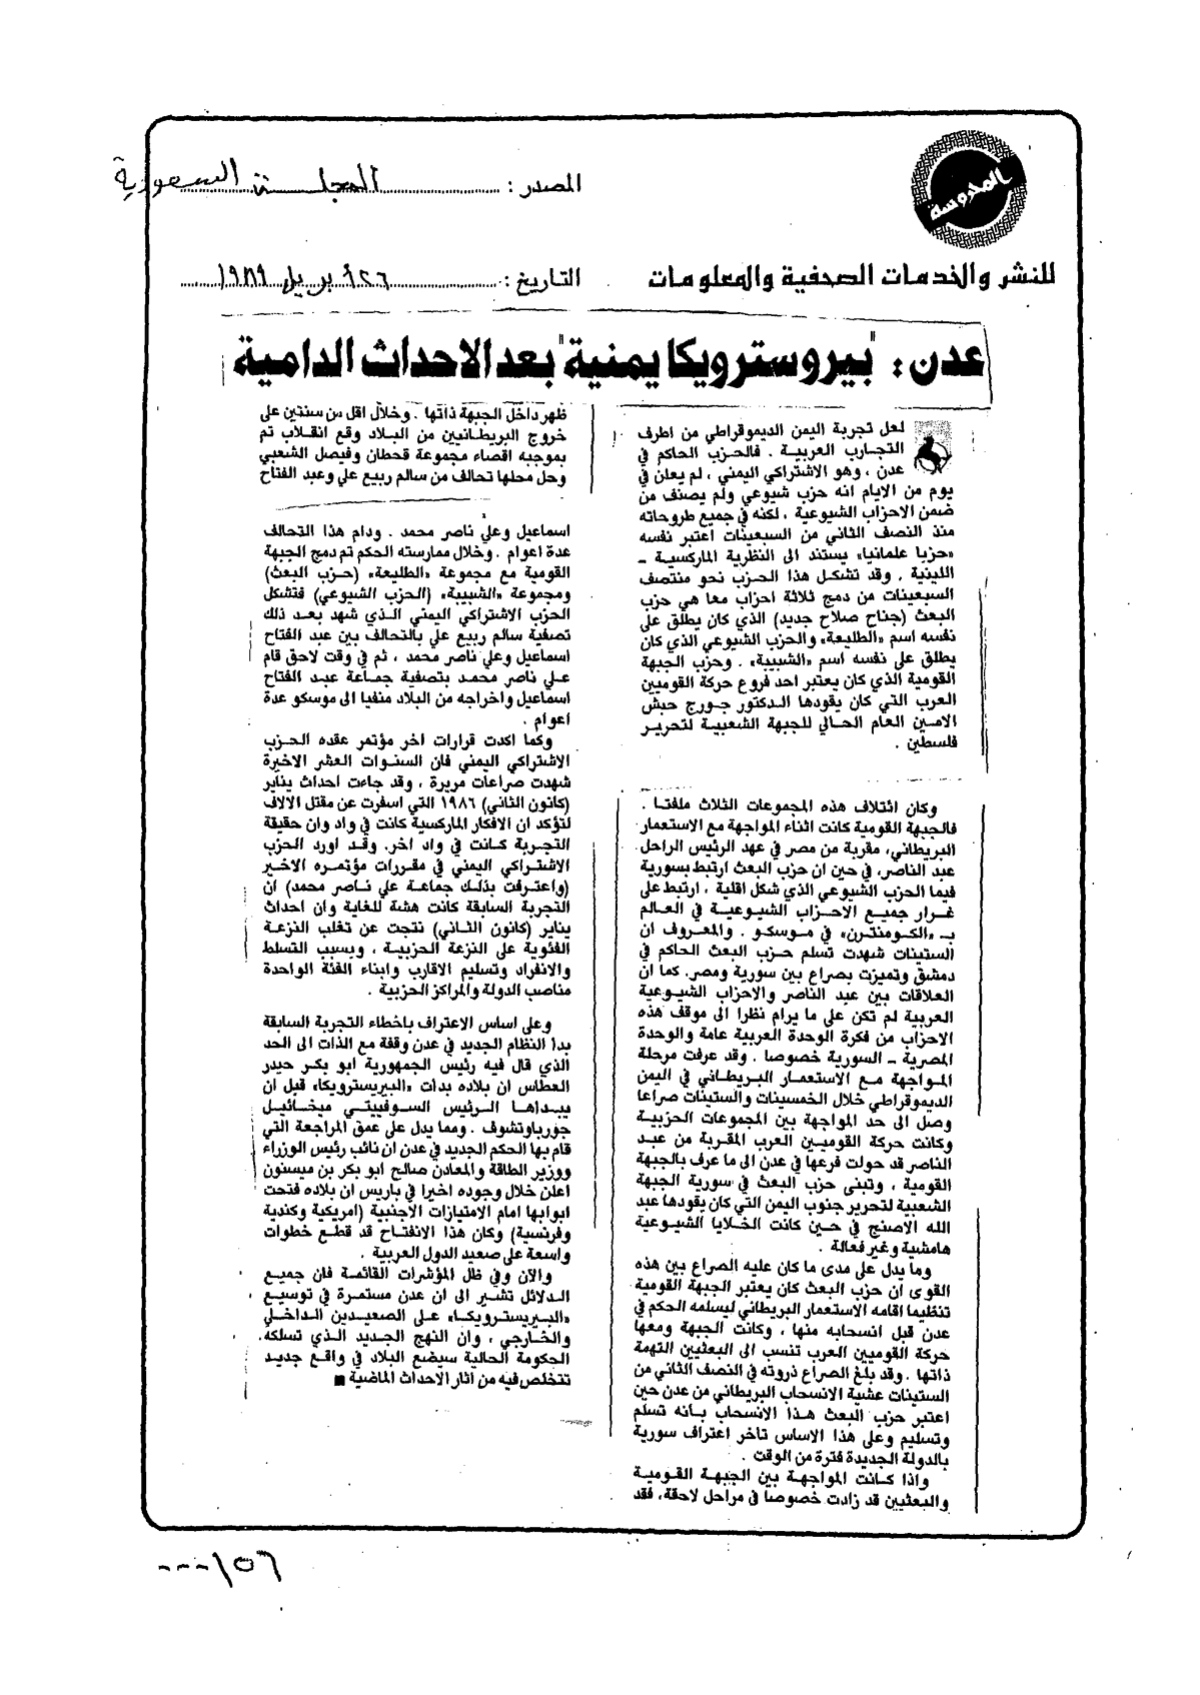 المحروسة
المصدر : المجلة السعودية
للنشر والخدمات الصحفية والمعلومات
التاريخ : ٢٦ ابريل ١٩٨٩
عدن : "بيروسترويكا يمنية" بعد الاحداث الدامية
لعل تجربة اليمن الديموقراطي من اطرف
التجارب العربية . فالحزب الحاكم في
عدن ، وهو الاشتراكي اليمني ، لم يعلن في
يوم من الايام انه حزب شيوعي ولم يصنف من
ضمن الاحزاب الشيوعية . لكنه في جميع طروحاته
منذ النصف الثاني من السبعينات اعتبر نفسه
«حزبا علمانيا» يستند الى النظرية الماركسية ـ
اللينية . وقد تشكل هذا الحزب نحو منتصف
السبعينات من دمج ثلاثة احزاب معا هي حزب
البعث (جناح صلاح جديد) الذي كان يطلق على
نفسه اسم «الطليعة» والحزب الشيوعي الذي كان
يطلق على نفسه اسم «الشبيبة» . وحزب الجبهة
القومية الذي كان يعتبر احد فروع حركة القوميين
العرب التي كان يقودها الدكتور جورج حبش
الامين العام الحالي للجبهة الشعبية لتحرير
فلسطين .
وكان ائتلاف هذه المجموعات الثلاث ملفتا .
فالجبهة القومية كانت اثناء المواجهة مع الاستعمار
البريطاني، مقربة من مصر في عهد الرئيس الراحل
عبد الناصر، في حين ان حزب البعث ارتبط بسورية
فيما الحزب الشيوعي الذي شكل اقلية ، ارتبط على
غرار جميع الاحزاب الشيوعية في العالم
بـ «الكومنترن» في موسكو . والمعروف ان
الستينات شهدت تسلم حزب البعث الحاكم في
دمشق وتميزت بصراع بين سورية ومصر. كما ان
العلاقات بين عبد الناصر والاحزاب الشيوعية
العربية لم تكن على ما يرام نظرا الى موقف هذه
الاحزاب من فكرة الوحدة العربية عامة والوحدة
المصرية ـ السورية خصوصا . وقد عرفت مرحلة
المواجهة مع الاستعمار البريطاني في اليمن
الديموقراطي خلال الخمسينات والستينات صراعا
وصل الى حد المواجهة بين المجموعات الحزبية
وكانت حركة القوميين العرب المقربة من عبد
الناصر قد حولت فرعها في عدن الى ما عرف بالجبهة
القومية ، وتبنى حزب البعث في سورية الجبهة
الشعبية لتحرير جنوب اليمن التي كان يقودها عبد
الله الاصنج في حين كانت الخلايا الشيوعية
هامشية وغير فعالة .
وما يدل على مدى ما كان عليه الصراع بين هذه
القوى ان حزب البعث كان يعتبر الجبهة القومية
تنظيما اقامه الاستعمار البريطاني ليسلمه الحكم في
عدن قبل انسحابه منها ، وكانت الجبهة ومعها
حركة القوميين العرب تنسب الى البعثيين التهمة
ذاتها . وقد بلغ الصراع ذروته في النصف الثاني من
الستينات عشية الانسحاب البريطاني من عدن حين
اعتبر حزب البعث هذا الانسحاب بانه تسلم
وتسليم وعلى هذا الاساس تاخر اعتراف سورية
بالدولة الجديدة فترة من الوقت .
واذا كانت المواجهة بين الجبهة القومية
والبعثيين قد زادت خصوصا في مراحل لاحقة، فقد
ظهر داخل الجبهة ذاتها . وخلال اقل من سنتين على
خروج البريطانيين من البلاد وقع انقلاب تم
بموجبه اقصاء مجموعة قحطان وفيصل الشعبي
وحل محلها تحالف من سالم ربيع علي وعبد الفتاح
اسماعيل وعلي ناصر محمد . ودام هذا التحالف
عدة اعوام . وخلال ممارسته الحكم تم دمج الجبهة
القومية مع مجموعة «الطليعة» (حزب البعث)
ومجموعة «الشبيبة» (الحزب الشيوعي) فتشكل
الحزب الاشتراكي اليمني الذي شهد بعد ذلك
تصفية سالم ربيع علي بالتحالف بين عبد الفتاح
اسماعيل وعلي ناصر محمد ، ثم في وقت لاحق قام
علي ناصر محمد بتصفية جماعة عبد الفتاح
اسماعيل واخراجه من البلاد منفيا الى موسكو عدة
اعوام .
وكما اكدت قرارات اخر مؤتمر عقده الحزب
الاشتراكي اليمني فان السنوات العشر الاخيرة
شهدت صراعات مريرة ، وقد جاءت احداث يناير
(كانون الثاني) ١٩٨٦ التي اسفرت عن مقتل الالاف
لتؤكد ان الافكار الماركسية كانت في واد وان حقيقة
التجربة كانت في واد اخر. وقد اورد الحزب
الاشتراكي اليمني في مقررات مؤتمره الاخير
(واعترفت بذلك جماعة علي ناصر محمد) ان
التجربة السابقة كانت هشة للغاية وان احداث
يناير (كانون الثاني) نتجت عن تغلب النزعة
الفئوية على النزعة الحزبية ، وبسبب التسلط
والانفراد وتسليم الاقارب وابناء الفئة الواحدة
مناصب الدولة والمراكز الحزبية .
وعلى اساس الاعتراف باخطاء التجربة السابقة
بدا النظام الجديد في عدن وقفة مع الذات الى الحد
الذي قال فيه رئيس الجمهورية ابو بكر حيدر
العطاس ان بلاده بدات «البيريسترويكا» قبل ان
يبداها الرئيس السوفييتي ميخائيل
جورباوتشوف . ومما يدل على عمق المراجعة التي
قام بها الحكم الجديد في عدن ان نائب رئيس الوزراء
ووزير الطاقة والمعادن صالح ابو بكر بن ميسنون
اعلن خلال وجوده اخيرا في باريس ان بلاده فتحت
ابوابها امام الامتيازات الاجنبية (امريكية وكندية
وفرنسية) وكان هذا الانفتاح قد قطع خطوات
واسعة على صعيد الدول العربية .
والآن وفي ظل المؤشرات القائمة فان جميع
الدلائل تشير الى ان عدن مستمرة في توسيع
«البيريسترويكا» على الصعيدين الداخلي
والخارجي ، وان النهج الجديد الذي تسلكه
الحكومة الحالية سيضع البلاد في واقع جديد
تتخلص فيه من اثار الاحداث الماضية ■
١٥٦---